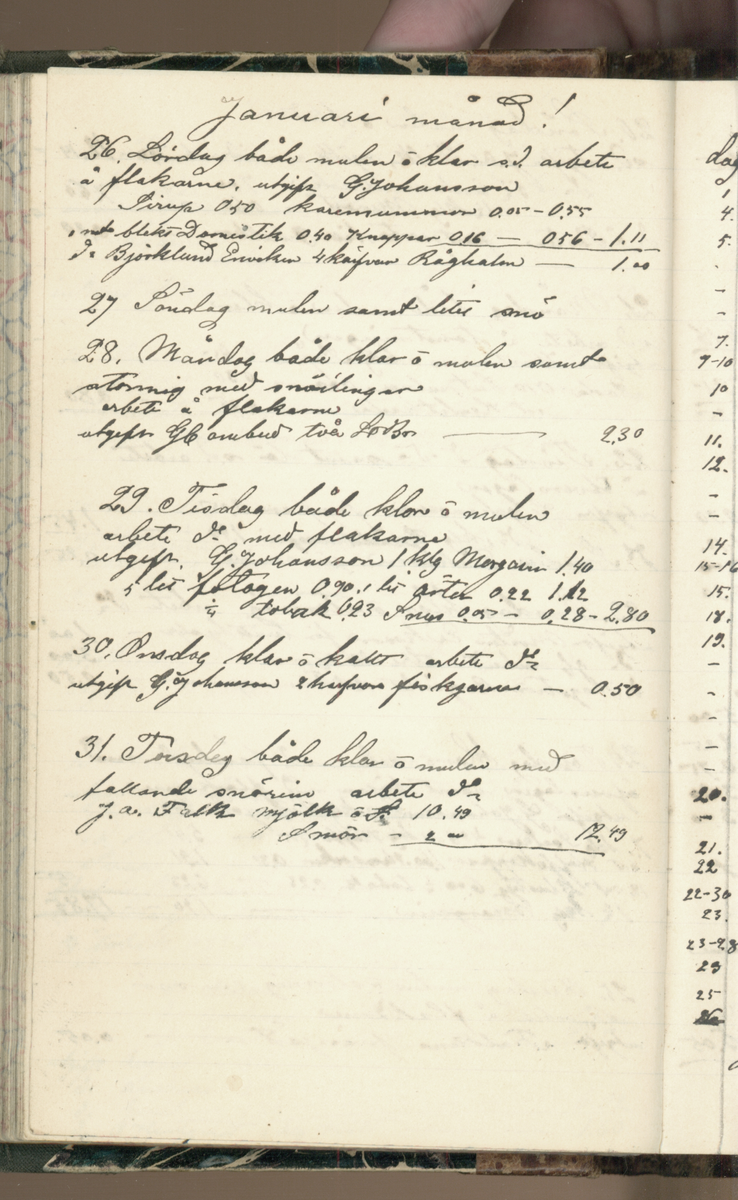 Januari månad!
26. Lördag både mulen ō klar s.d. arbete
å flakarne, utgift G. Johansson
Sirup 0.50 karemummor 0.05 – 0.55
1 mt blekt Domestik 0.40 Knappar 0.16 — 0.56 – 1.11
Do Björklund Enviken 4 kärfvar Råghalm — 1.00
27 Söndag mulen samt lite snö
28. Måndag både klar ō mulen samt
stormig med snöilingar
arbete å flakarne
utgift GG ombud två — 2.30
29. Tisdag både klar ō mulen
arbete Do med flakarne
utgift. G. Johansson 1 Klg Margarin 1.40
5 lit fotogen 0.90. 1 lit ärter 0.22 1.12
¼ tobak 0.23 Snus 0.05 – 0.28 – 2.80
30. Onsdag klar ō kallt arbete Do
utgift G. Johansson 2 fiskgarn — 0.50
31. Torsdag både klar ō mulen med
fallande snö arbete Do
J. A. Falk mjölk ō 10.49
Smör – 2 00 12.49
dag
1
4.
5.
-
-
-
7.
9-10
10
-
11.
12.
-
-
14.
15-16
15.
18.
19.
-
-
-
-
-
20.
-
21.
22
22-30
23.
23-28
23
25
26